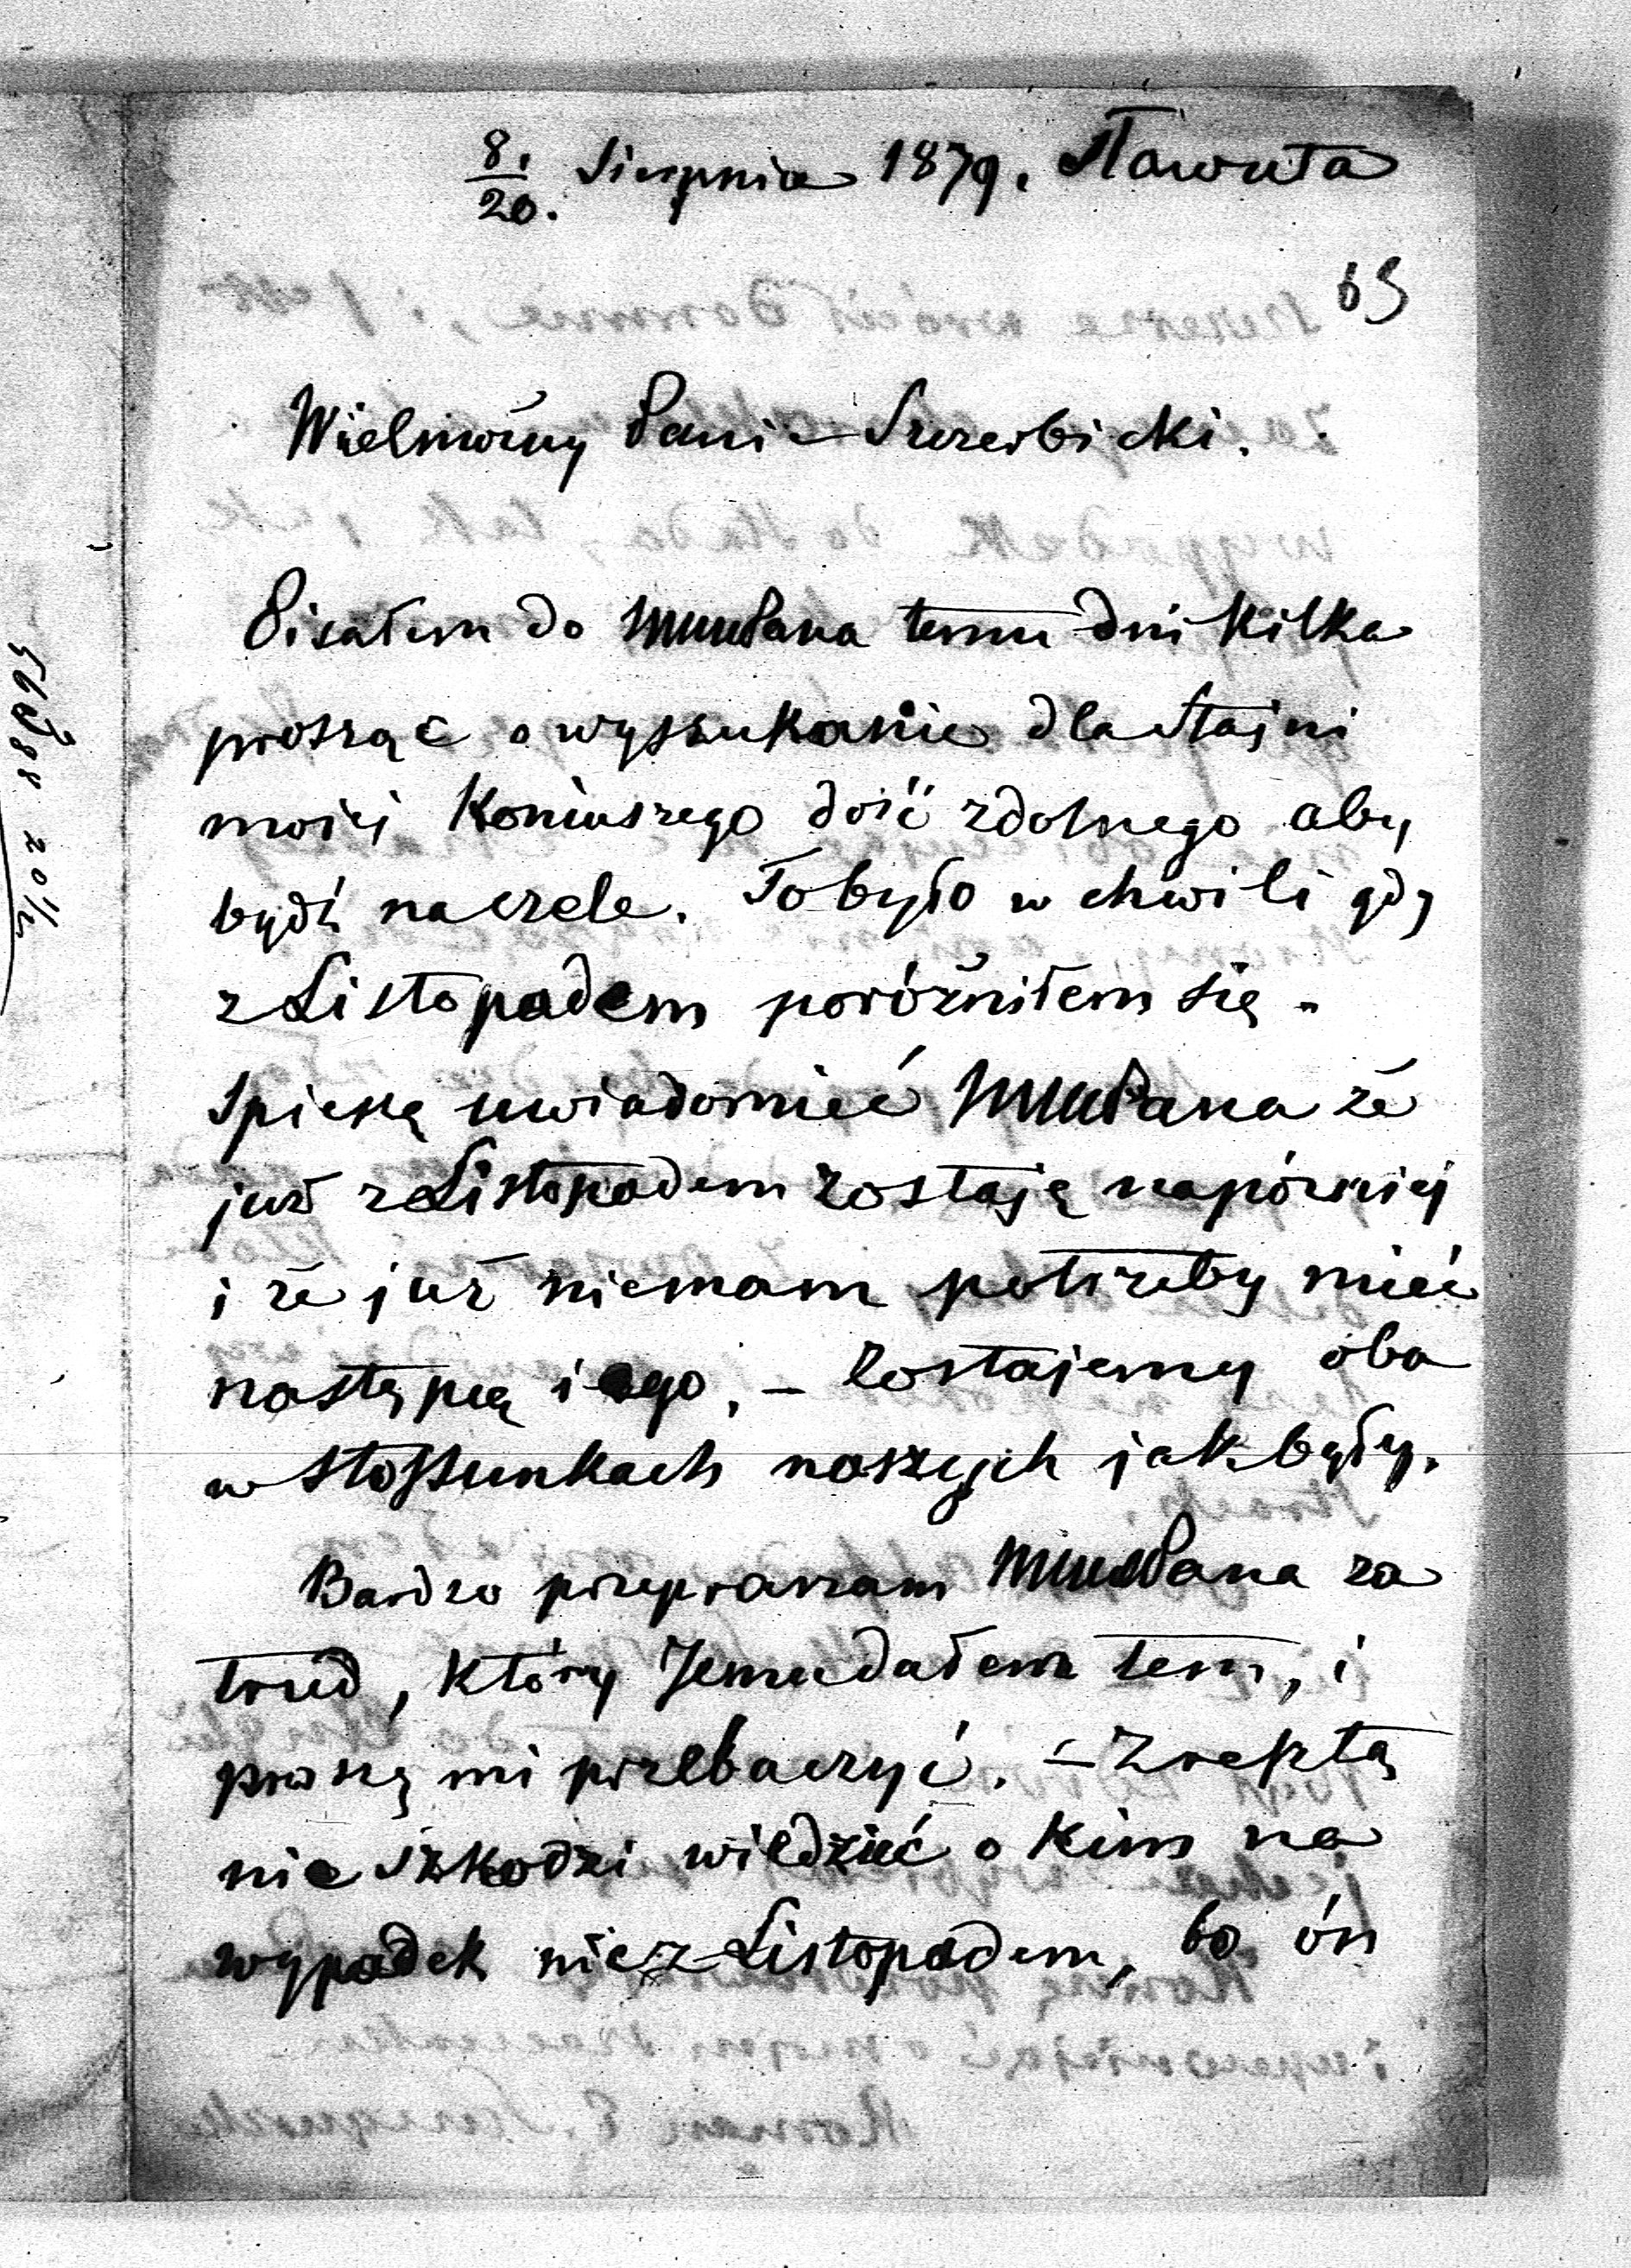 8./20. Sierpnia 1879. Sławuta
69
Wielmożny Panie Szczerbicki.
Pisałem do WMPana temu dni kilka
prosząc o wyszukanie dla Stajni
mojej Koniuszego dość zdolnego aby
bydź na czele. To było w chwili gdy
z Listopadem poróżniłem się.
Spieszę uwiadomieć WMPana że
już z Listopadem zostaję napórniej
i że już niemam potrzeby mieć
następcę iego. – Zostajemy oba
w stossunkach naszych jak były.
Bardzo przepraszam WMPana za
trud, który Jemu dałem tem, i
proszę mi przebaczyć. – Zresztą
nie szkodzi wiedzieć o kim na
wypadek nie z Listopadem, bo ón